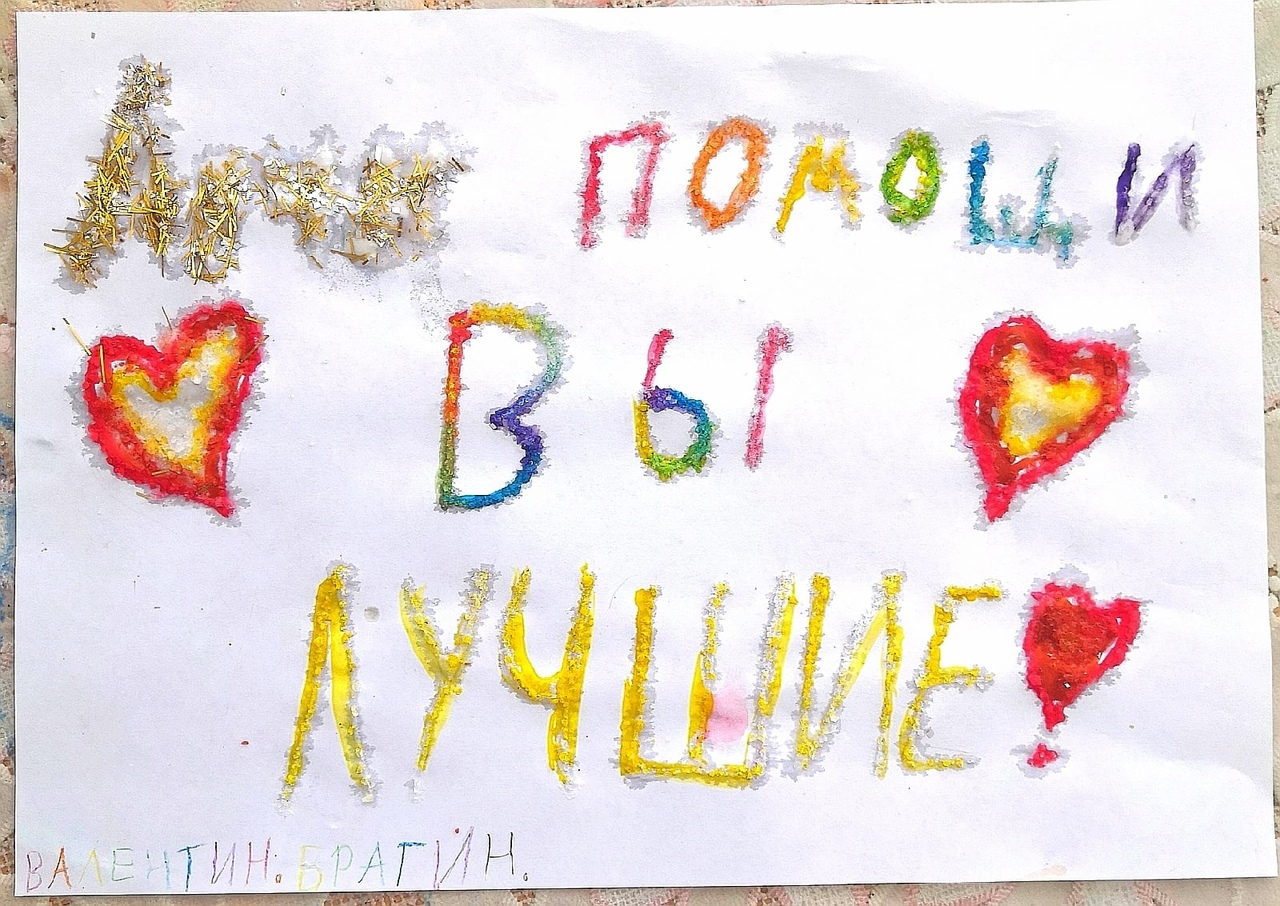 ПОМОЩИ
ВЫ
ЛУЧШИЕ!
ВАЛЕНТИН. БРАГИН.